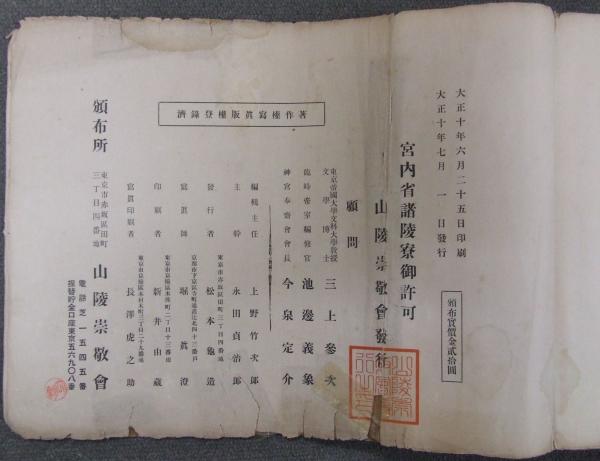 大正十年六月二十五日印刷
大正十年七月 一 日發行
頒布實價金貳拾圓
宮内省諸陵寮御許可
山陵崇敬會發行
顧問
東京帝國大學文科大學教授
文學博士
三上參次
臨時帝室編修官
池邊義象
神宮奉齋會會長
今泉定介
著作權寫眞版權登錄濟
編輯主任
上野竹次郎
主幹
永田貞治郎
東京市赤坂區田町三丁目四番地
發行者
松本鉋造
寫眞師
堀眞澄
印刷者
新井由藏
寫眞印刷者
長澤虎之助
頒布所
東京市赤坂區田町
三丁目四番地
山陵崇敬會
電話芝 五四五番
振替貯金口座東京五六九〇八番